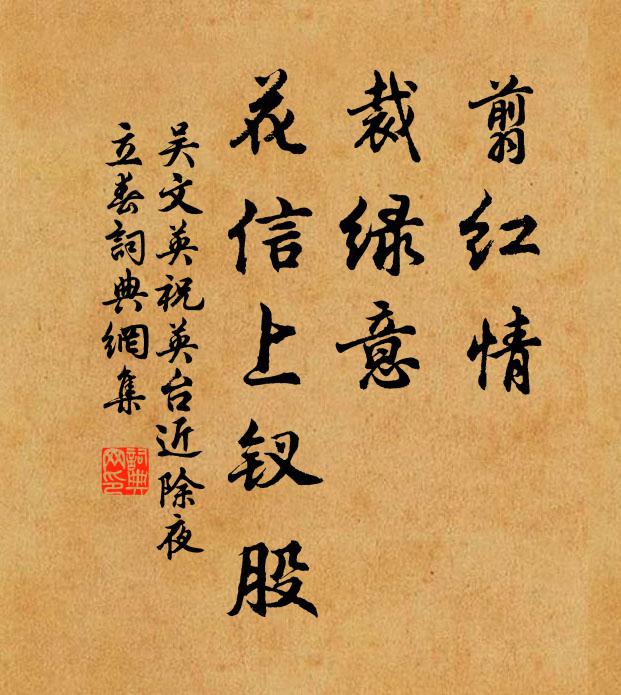 翦红情
裁绿意
花信上钗股
吴文英祝英台近除夜
立春詞典網集
詞典网印